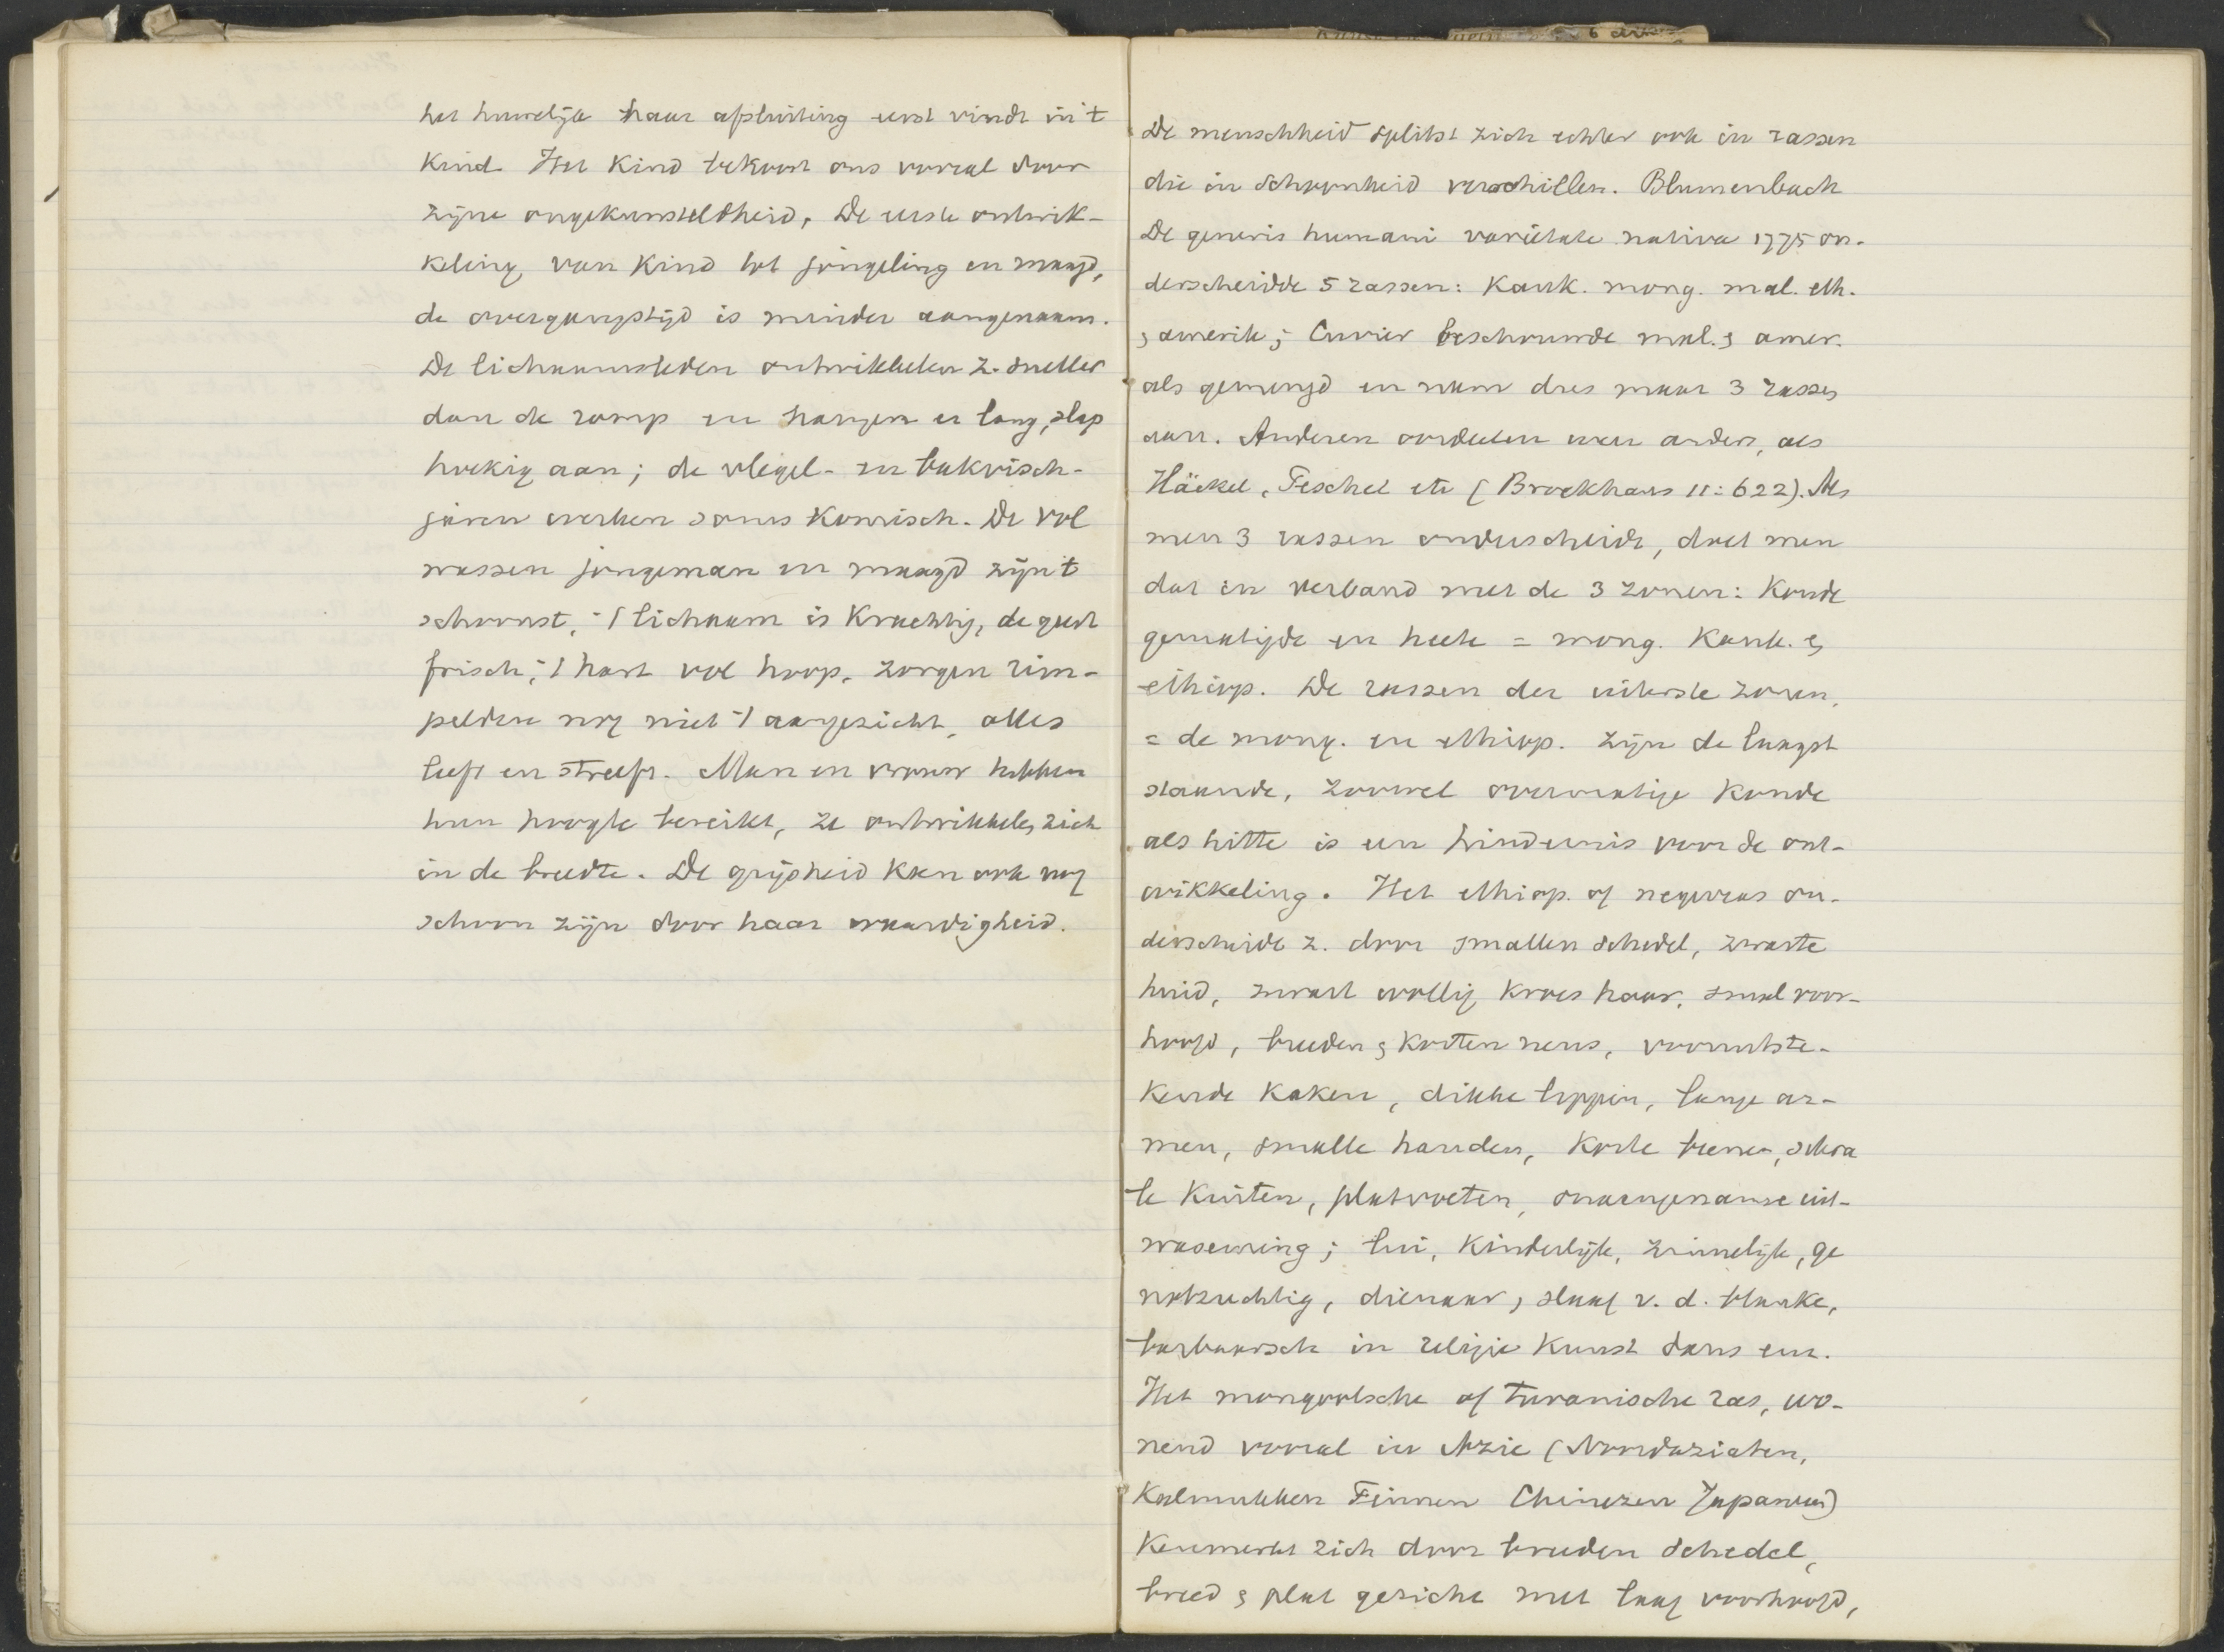 het huwelijk haar afsluiting eerst vindt in 't
kind. Het kind bekoort ons vooral door
zijne ongekunsteldheid. De eerste ontwik-
keling van kind tot jongeling en maagd,
de overgangstijd is minder aangenaam.
De lichaamsleden ontwikkelen z. sneller
dan de romp en hangen er lang, slap
hoekig aan; de vlegel- en bakvisch-
jaren werken soms komisch. De vol
wassen jongeman en maagd zijn 't
schoonst, 't lichaam is krachtig, de geest
frisch, 't hart vol hoop, zorgen rim-
pelden nog niet 't aangezicht, alles
leeft en streeft. Man en vrouw hebben
hun hoogte bereikt, ze ontwikkelen zich
in de breedte. De grijsheid kan ook nog
schoon zijn door haar waardigheid.
De menschheid splitst zich echter ook in rassen
die in schoonheid verschillen. Blumenbach
De generis humani varietate nativa 1775 on-
derscheidde 5 rassen: Kauk. mong. mal. eth.
& amerik; Cuvier beschouwde mal. & amer.
als gemengd en nam dus maar 3 rassen
aan. Anderen oordeelen weer anders, als
Häckel, Peschel etc (Brockhaus 11:622). Als
men 3 rassen onderscheidt, doet men
dat in verband met de 3 zonen: koude
gematigde en heete = mong. Kauk. &
ethiop. De rassen der uiterste zonen,
= de mong. en ethiop. zijn de laagst
staande, zoowel overmatige koude
als hitte is een hindernis voor de ont-
wikkeling. Het ethiop. of negerras on-
derscheidt z. door smallen schedel, zwarte
huid, zwart wollig kroes haar, smal voor-
hoofd, breeden & korten neus, vooruitste-
kende kaken, dikke lippen, lange ar-
men, smalle handen, korte beenen, schra
le kuiten, platvoeten, onaangename uit-
waseming; lui, kinderlijk, zinnelijk, ge
notzuchtig, dienaar, slaaf v. d. blanke,
barbaarsch in religie kunst dans enz.
Het mongoolsche of turanische ras, wo-
nend vooral in Azie (Noordaziaten,
Kalmukken Finnen Chineezen Japaneezen)
kenmerkt zich door breeden schedel,
breed & plat gezicht met laag voorhoofd,